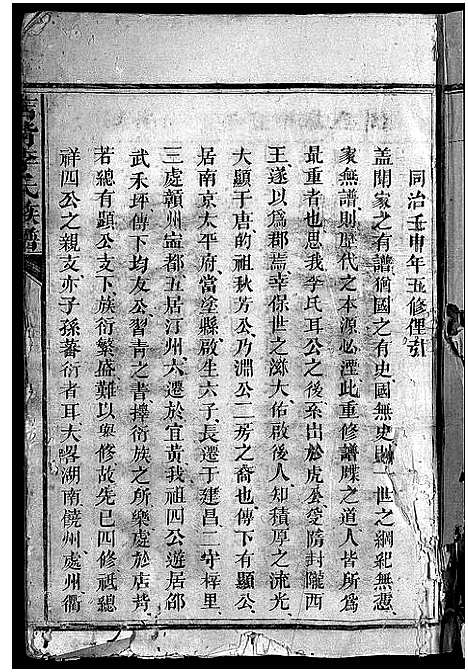 同治壬申年五修俚引
盖聞家之有譜猶國之有史國無史則一世之綱紀無憑
家無譜則歷代之本源必湮此重修譜牒之道人皆所爲
最重者也思我李氏耳公之後系出於虎公受隋封隴西
王遂以爲郡焉幸保世之滋大佑啟後人知積厚之流光
大顯于唐的祖秋芳公乃淵公二房之裔也傳下有顯公
居南京太平府當塗縣啟生六子長遷于建昌二守梓里
三處贛州寍都五居汀州六遷於宜黃我祖四公遊居邵
武禾坪傳下均友公習青之書擇衍族之所樂處於店背
若總有顯公支下族衍繁盛難以與修故先已四修祗總
祥四公之親支亦子孫蕃衍者耳大畧湖南饒州處州衢
店背李氏族譜